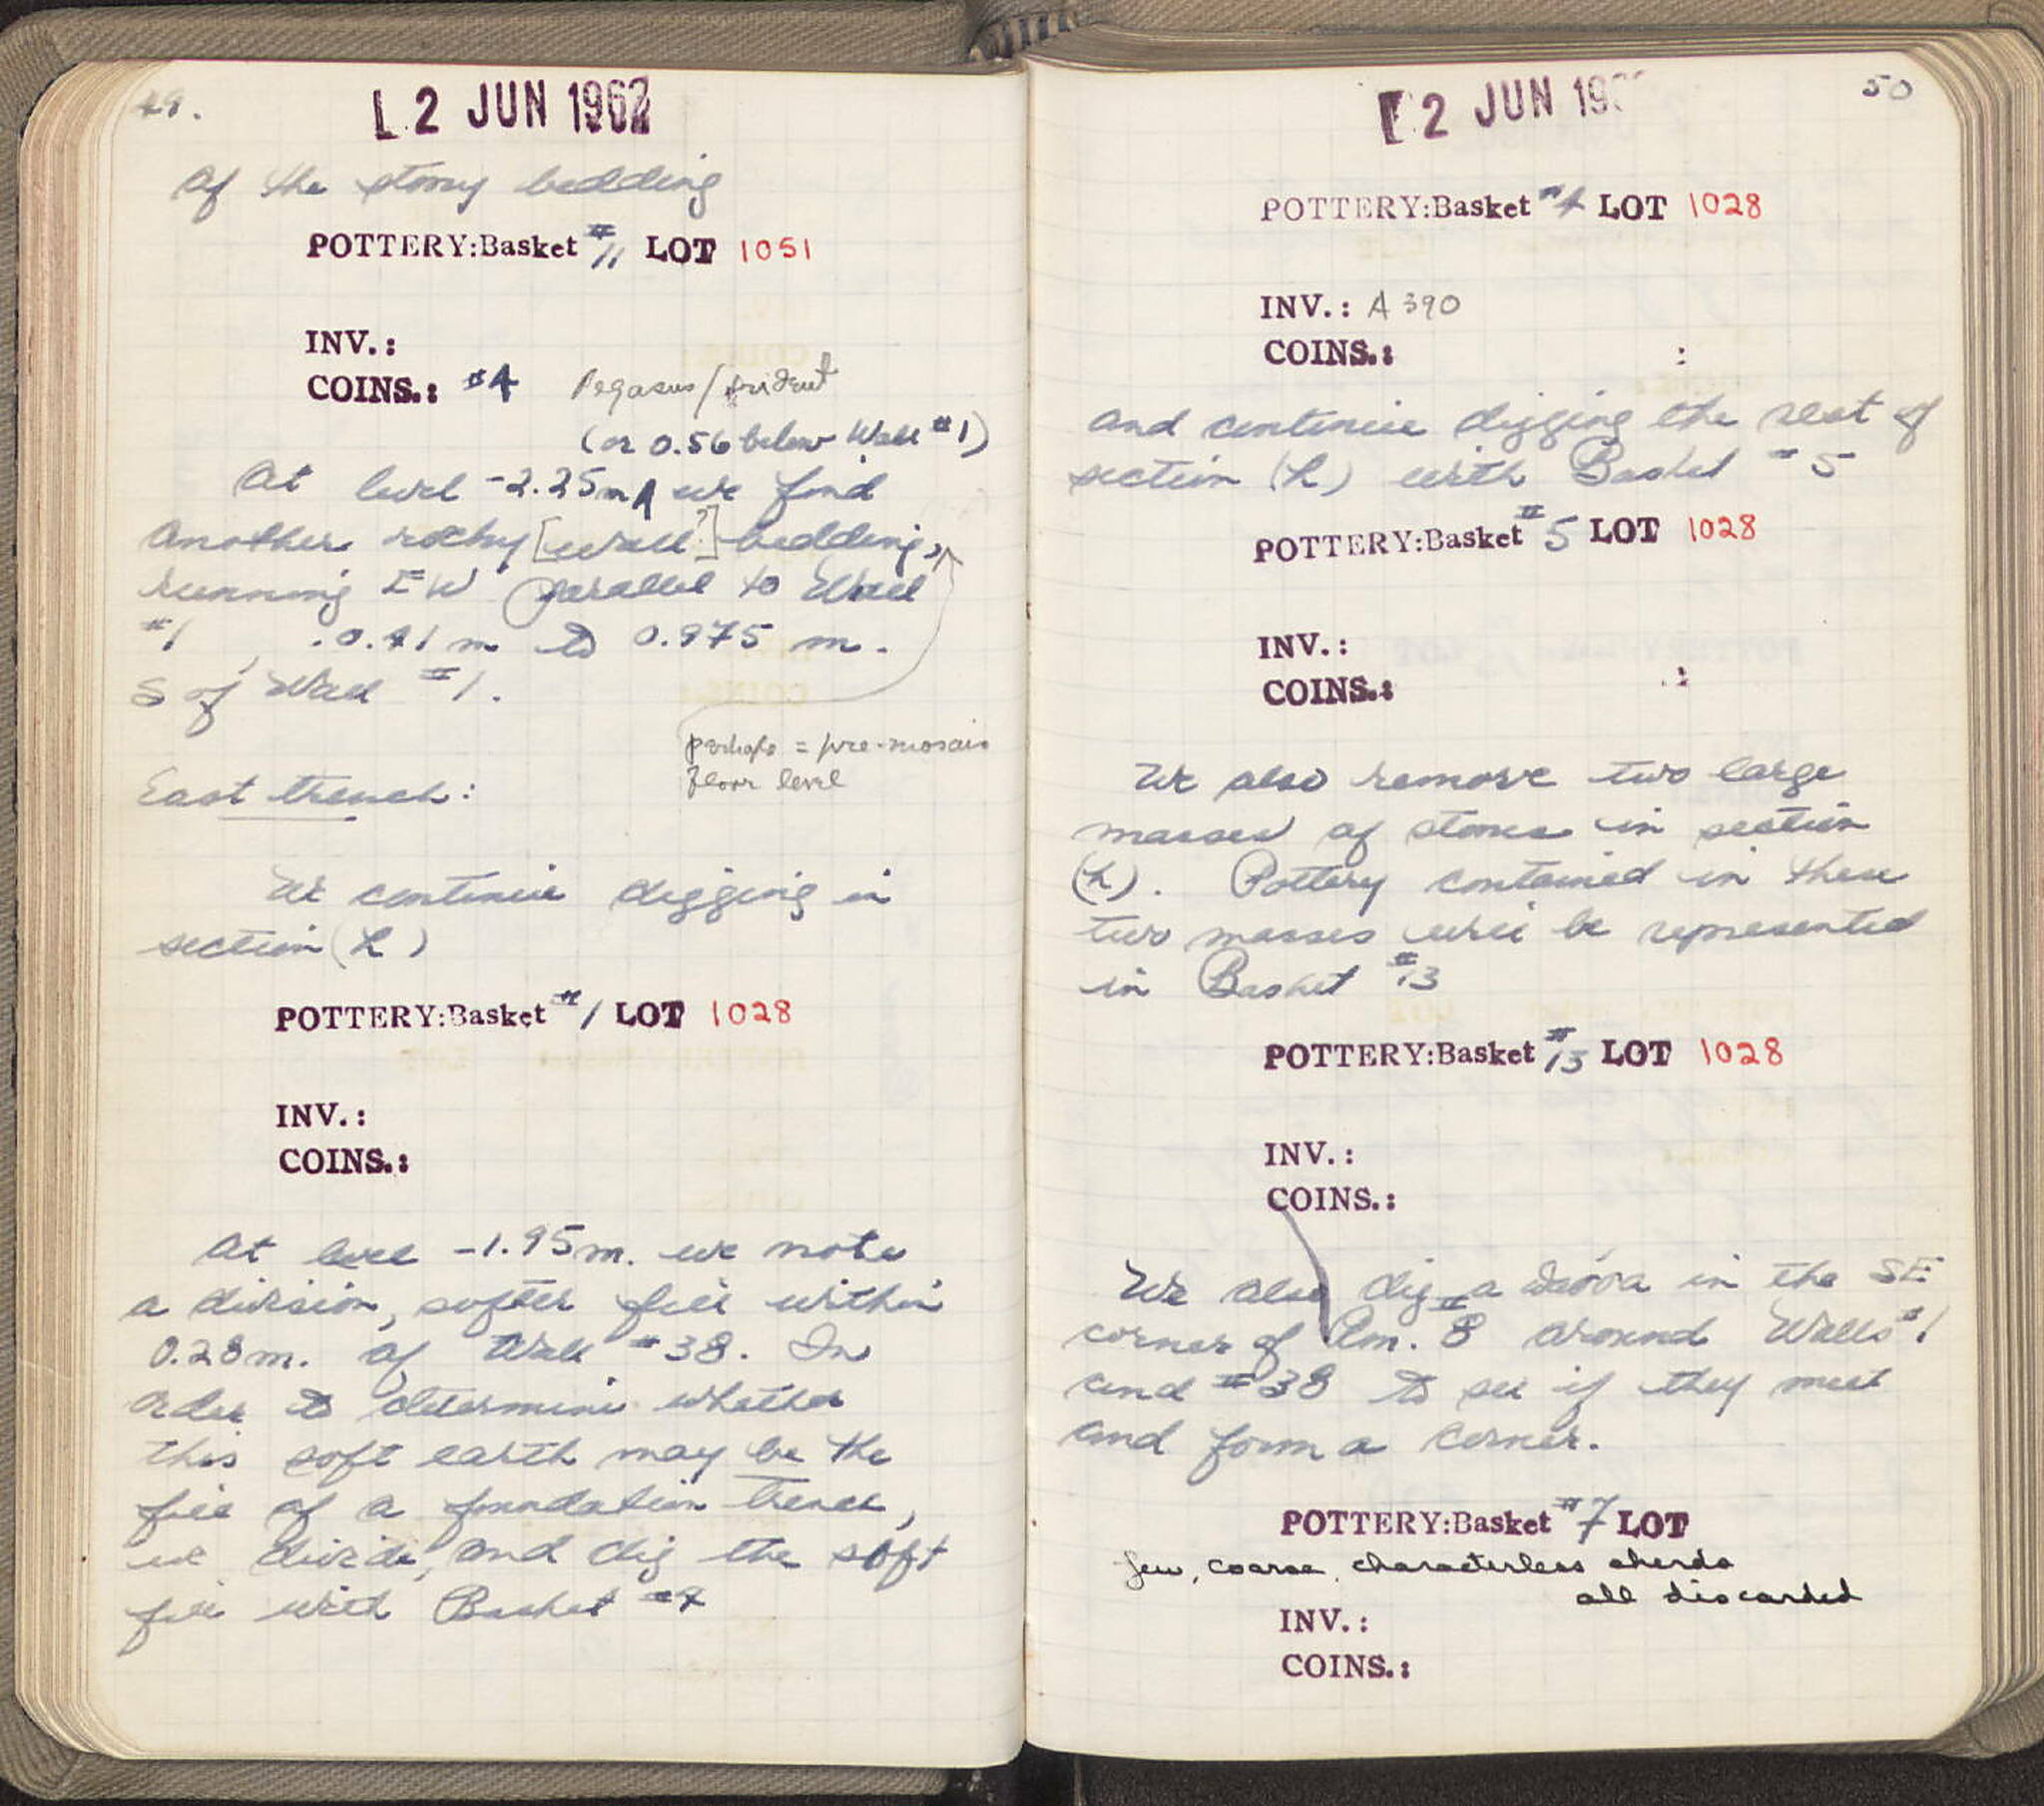 49.
2 JUN 1962
of the stony bedding
POTTERY:Basket #11 LOT 1051
INV.:
COINS.: #4 Pegasus/trident
(or 0.56 below Wall #1)
At level -2.25m we find
another rocky [wall?] bedding,
running EW parallel to Wall
#1, 0.41 m to 0.975 m.
S of Wall #1.
perhaps = pre-mosaic
floor level
East trench:
We continue digging in
section (h)
POTTERY:Basket #1 LOT 1028
INV.:
COINS.:
At level -1.95m. we note
a division, softer fill within
0.28m. of Wall #38. In
order to determine whether
this soft earth may be the
fill of a foundation trench,
we divide, and dig the soft
fill with Basket #4
50
2 JUN 19
POTTERY:Basket #4 LOT 1028
INV.: A 390
COINS.: :
and continue digging the rest of
section (h) with Basket #5
POTTERY:Basket #5 LOT 1028
INV.:
COINS.: :
We also remove two large
masses of stones in section
(h). Pottery contained in these
two masses will be represented
in Basket #13
POTTERY:Basket #13 LOT 1028
INV.:
COINS.:
We also dig a in the SE
corner of Rm. 8 around Walls #1
and #38 to see if they meet
and form a corner.
POTTERY:Basket #7 LOT
few, coarse, characterless sherds
all discarded
INV.:
COINS.: